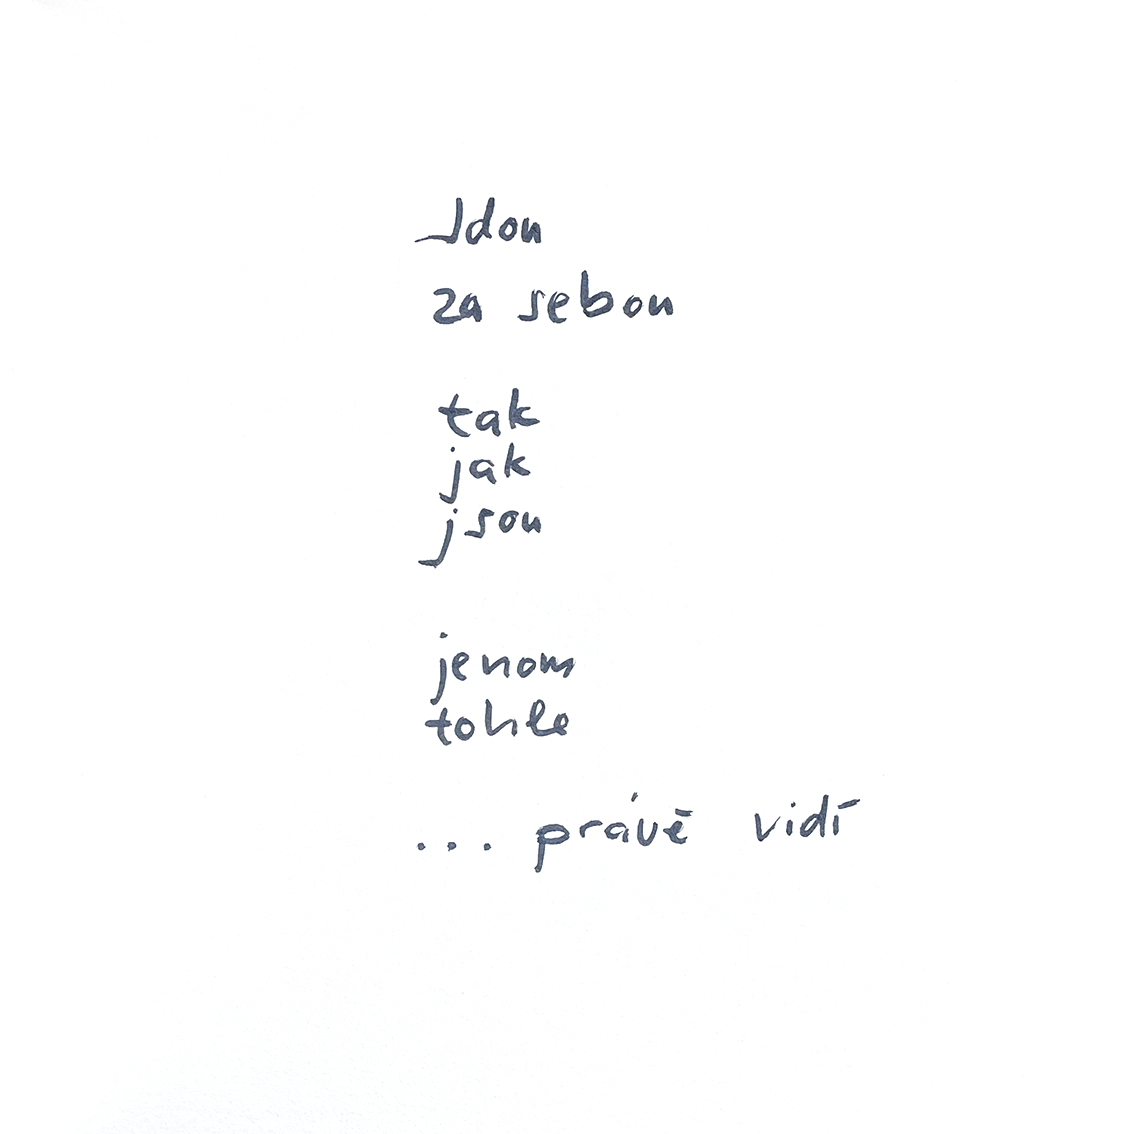 Jdou
za sebou
tak
jak
jsou
jenom
tohle
... právě vidí